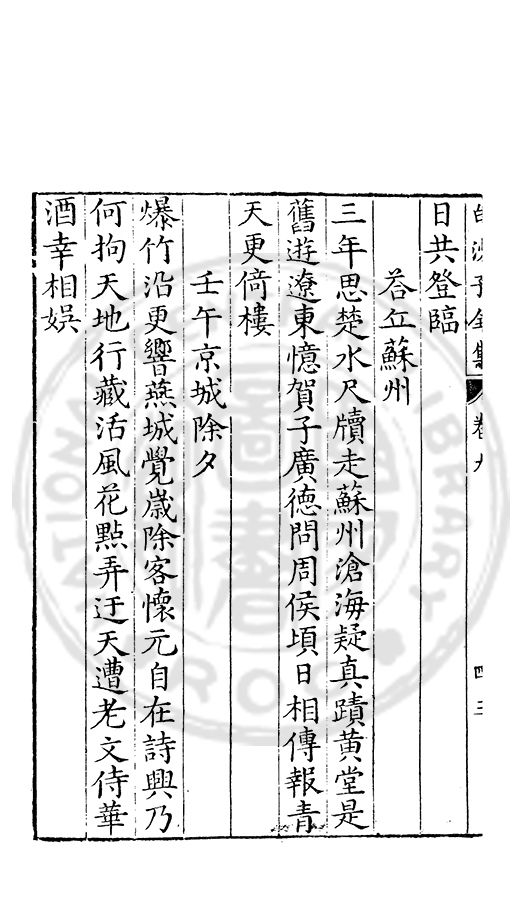 白沙子全集 卷九 四三
日共登臨
荅丘蘇州
三年思楚水尺牘走蘇州滄海疑真蹟黄堂是
舊遊遼東憶賀子廣德問周侯頃日相傳報青
天更倚樓
壬午京城除夕
爆竹沿更響燕城覺歲除客懷元自在詩興乃
何拘天地行藏活風花點弄迂天遭老文侍華
酒幸相娛